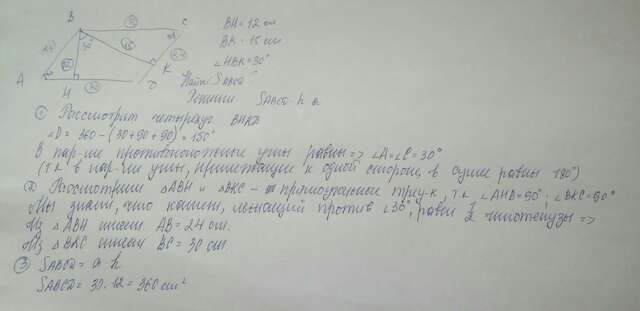 B C
30
24
30°
12
15
24
K
A H D
30
BH = 12 см
BK = 15 см
∠HBK = 30°
Найти SABCD?
Решение. SABCD = h·a
① Рассмотрим четырёхуг. BHKD
∠D = 360 - (30+90+90) = 150°
В пар-ме противоположные углы равны => ∠A=∠C=30°
(т.к. в пар-ме углы, прилежащие к одной стороне, в сумме равны 180°)
② Рассмотрим △ABH и △BKC - прямоугольные треу-к, т.к. ∠AHB=90°; ∠BKC=90°
Мы знаем, что катет, лежащий против ∠30°, равен 1/2 гипотенузы =>
Из △ABH имеем AB = 24 см.
Из △BKC имеем BC = 30 см.
③ SABCD = a·h
SABCD = 30·12 = 360 см²